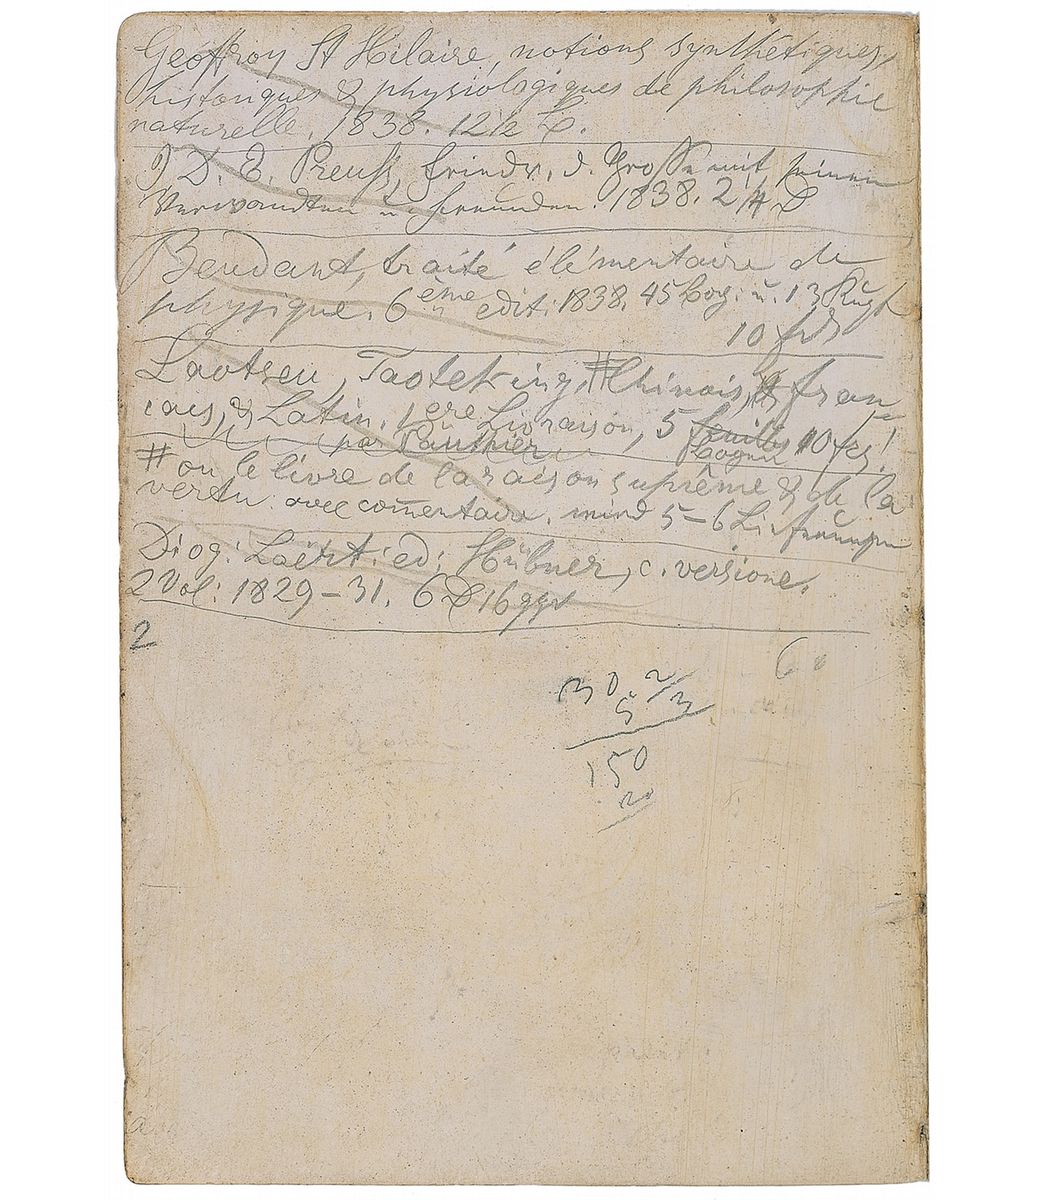 Geoffroy St Hilaire, notions synthétiques,
historiques & physiologiques de philosophie
naturelle. 1838. 12
J D. E. Preuß, Friedr. d. Große mit seinen
Verwandten u. Freunden. 1838. 2
Beudant, traité élémentaire de
physique. 6ème edit: 1838. 45 Bog: u. 13 Kupf
10 frcs
Laotseu, Taoteking, # Chinois, & fran
cais, & Latin. 1ere Livraison, 5 feuilles 10 fcs!
par Pauthier Bogen
# ou le livre de la raison suprême & de la
vertu avec comentaire. wird 5-6 Lieferungen
Diog: Laërt: ed: Hübner, c. versione.
2 Vol: 1829–31. 6 16 ggr
2
6
30 2/3
5
150
20